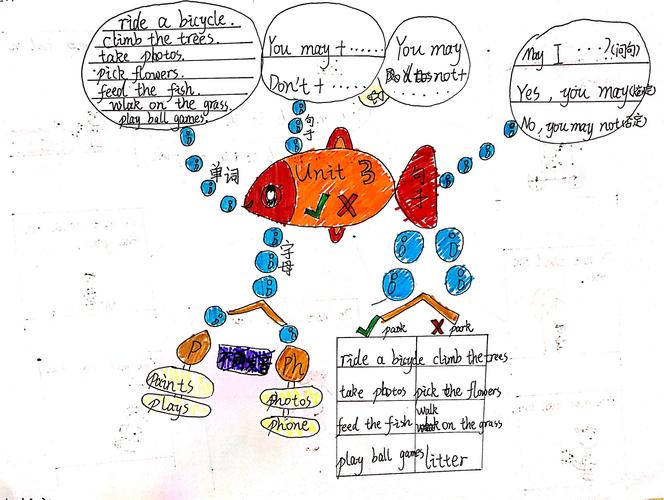 ride a bicycle.
climb the trees.
take photos.
pick flowers.
feed the fish.
wlak on the grass.
play ball games.
You may + ......
Don't + ......
You may
not +
May I ......?(问句)
Yes, you may(肯定)
No, you may not(否定)
单词
句子
Unit 3
句子
字母
P
不同发音
Ph
Paints
plays
photos
phone
park
park
ride a bicycle
climb the trees
take photos
pick the flowers
feed the fish
walk
on the grass
play ball games
litter